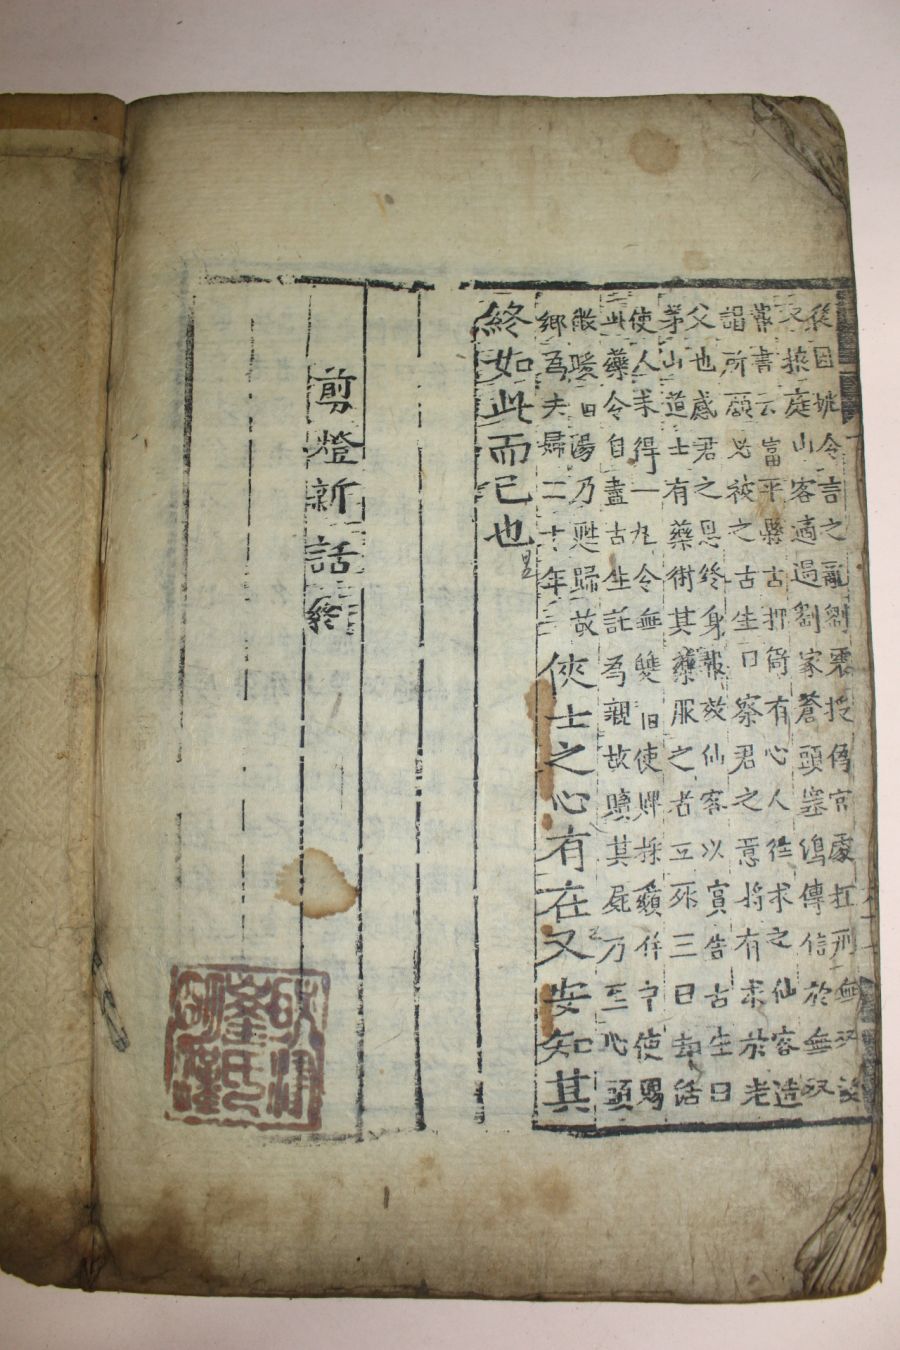 後因姚令言之亂劉震授僞官處扛刑無双沒
入掖庭山客適過劉家蒼頭塞鴻傳信於無双
嘗書云富平縣古押衙有心人徃求之仙客造
謁所願必致之古生曰察君之意將有求於老
父也感君之恩終身報效仙客以實告古生曰
茅山道士有藥術其藥服之者立死三日却活
使人求得一丸令無雙旧使婢採蘋佯中使賜
此藥令自盡古生託爲親故贖其屍乃至心頭
微暖乃甦歸故
鄕爲夫婦二十年
俠士之心有在又安知其
終如此而已也
剪燈新話終